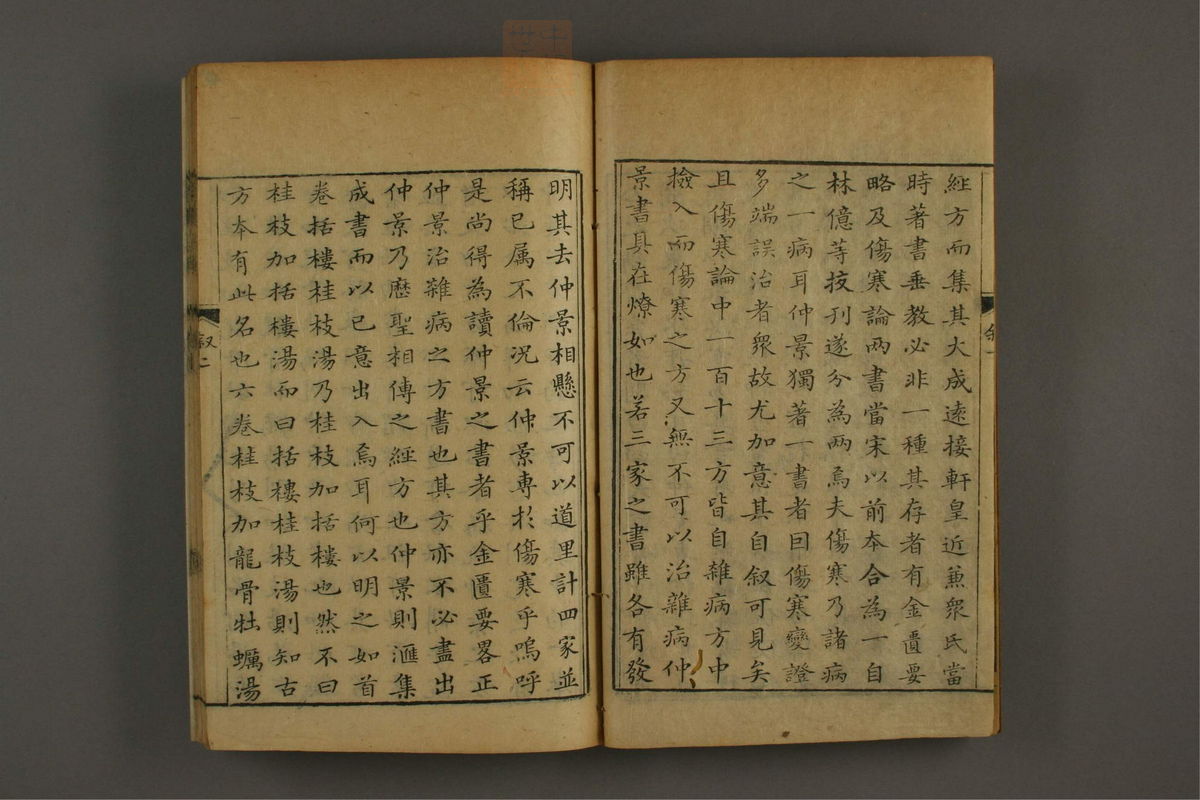 經方而集其大成遠接軒皇近兼衆氏當
時著書垂教必非一種其存者有金匱要
略及傷寒論两書當宋以前本合為一自
林億等挍刊遂分為两焉夫傷寒乃諸病
之一病耳仲景獨著一書者因傷寒變證
多端誤治者衆故尤加意其自叙可見矣
且傷寒論中一百十三方皆自雜病方中
撿入而傷寒之方又無不可以治雜病仲
景書具在燎如也若三家之書雖各有發
叙一
明其去仲景相懸不可以道里計四家並
稱已属不倫况云仲景專於傷寒乎嗚呼
是尚得為讀仲景之書者乎金匱要畧正
仲景治雜病之方書也其方亦不必盡出
仲景乃歷聖相傳之經方也仲景則滙集
成書而以己意出入焉耳何以明之如首
卷括樓桂枝湯乃桂枝加括樓也然不曰
桂枝加括樓湯而曰括樓桂枝湯則知古
方本有此名也六卷桂枝加龍骨牡蠣湯
叙二